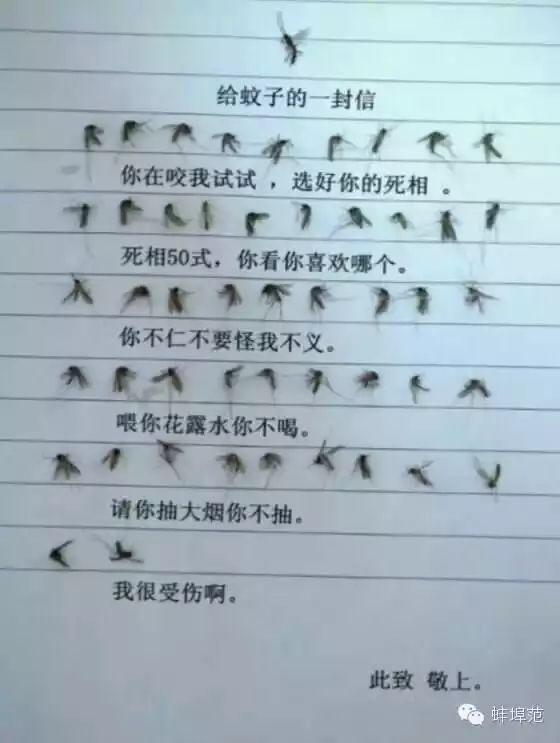 给蚊子的一封信
你在咬我试试，选好你的死相。
死相50式，你看你喜欢哪个。
你不仁不要怪我不义。
喂你花露水你不喝。
请你抽大烟你不抽。
我很受伤啊。
此致 敬上。
蚌埠范